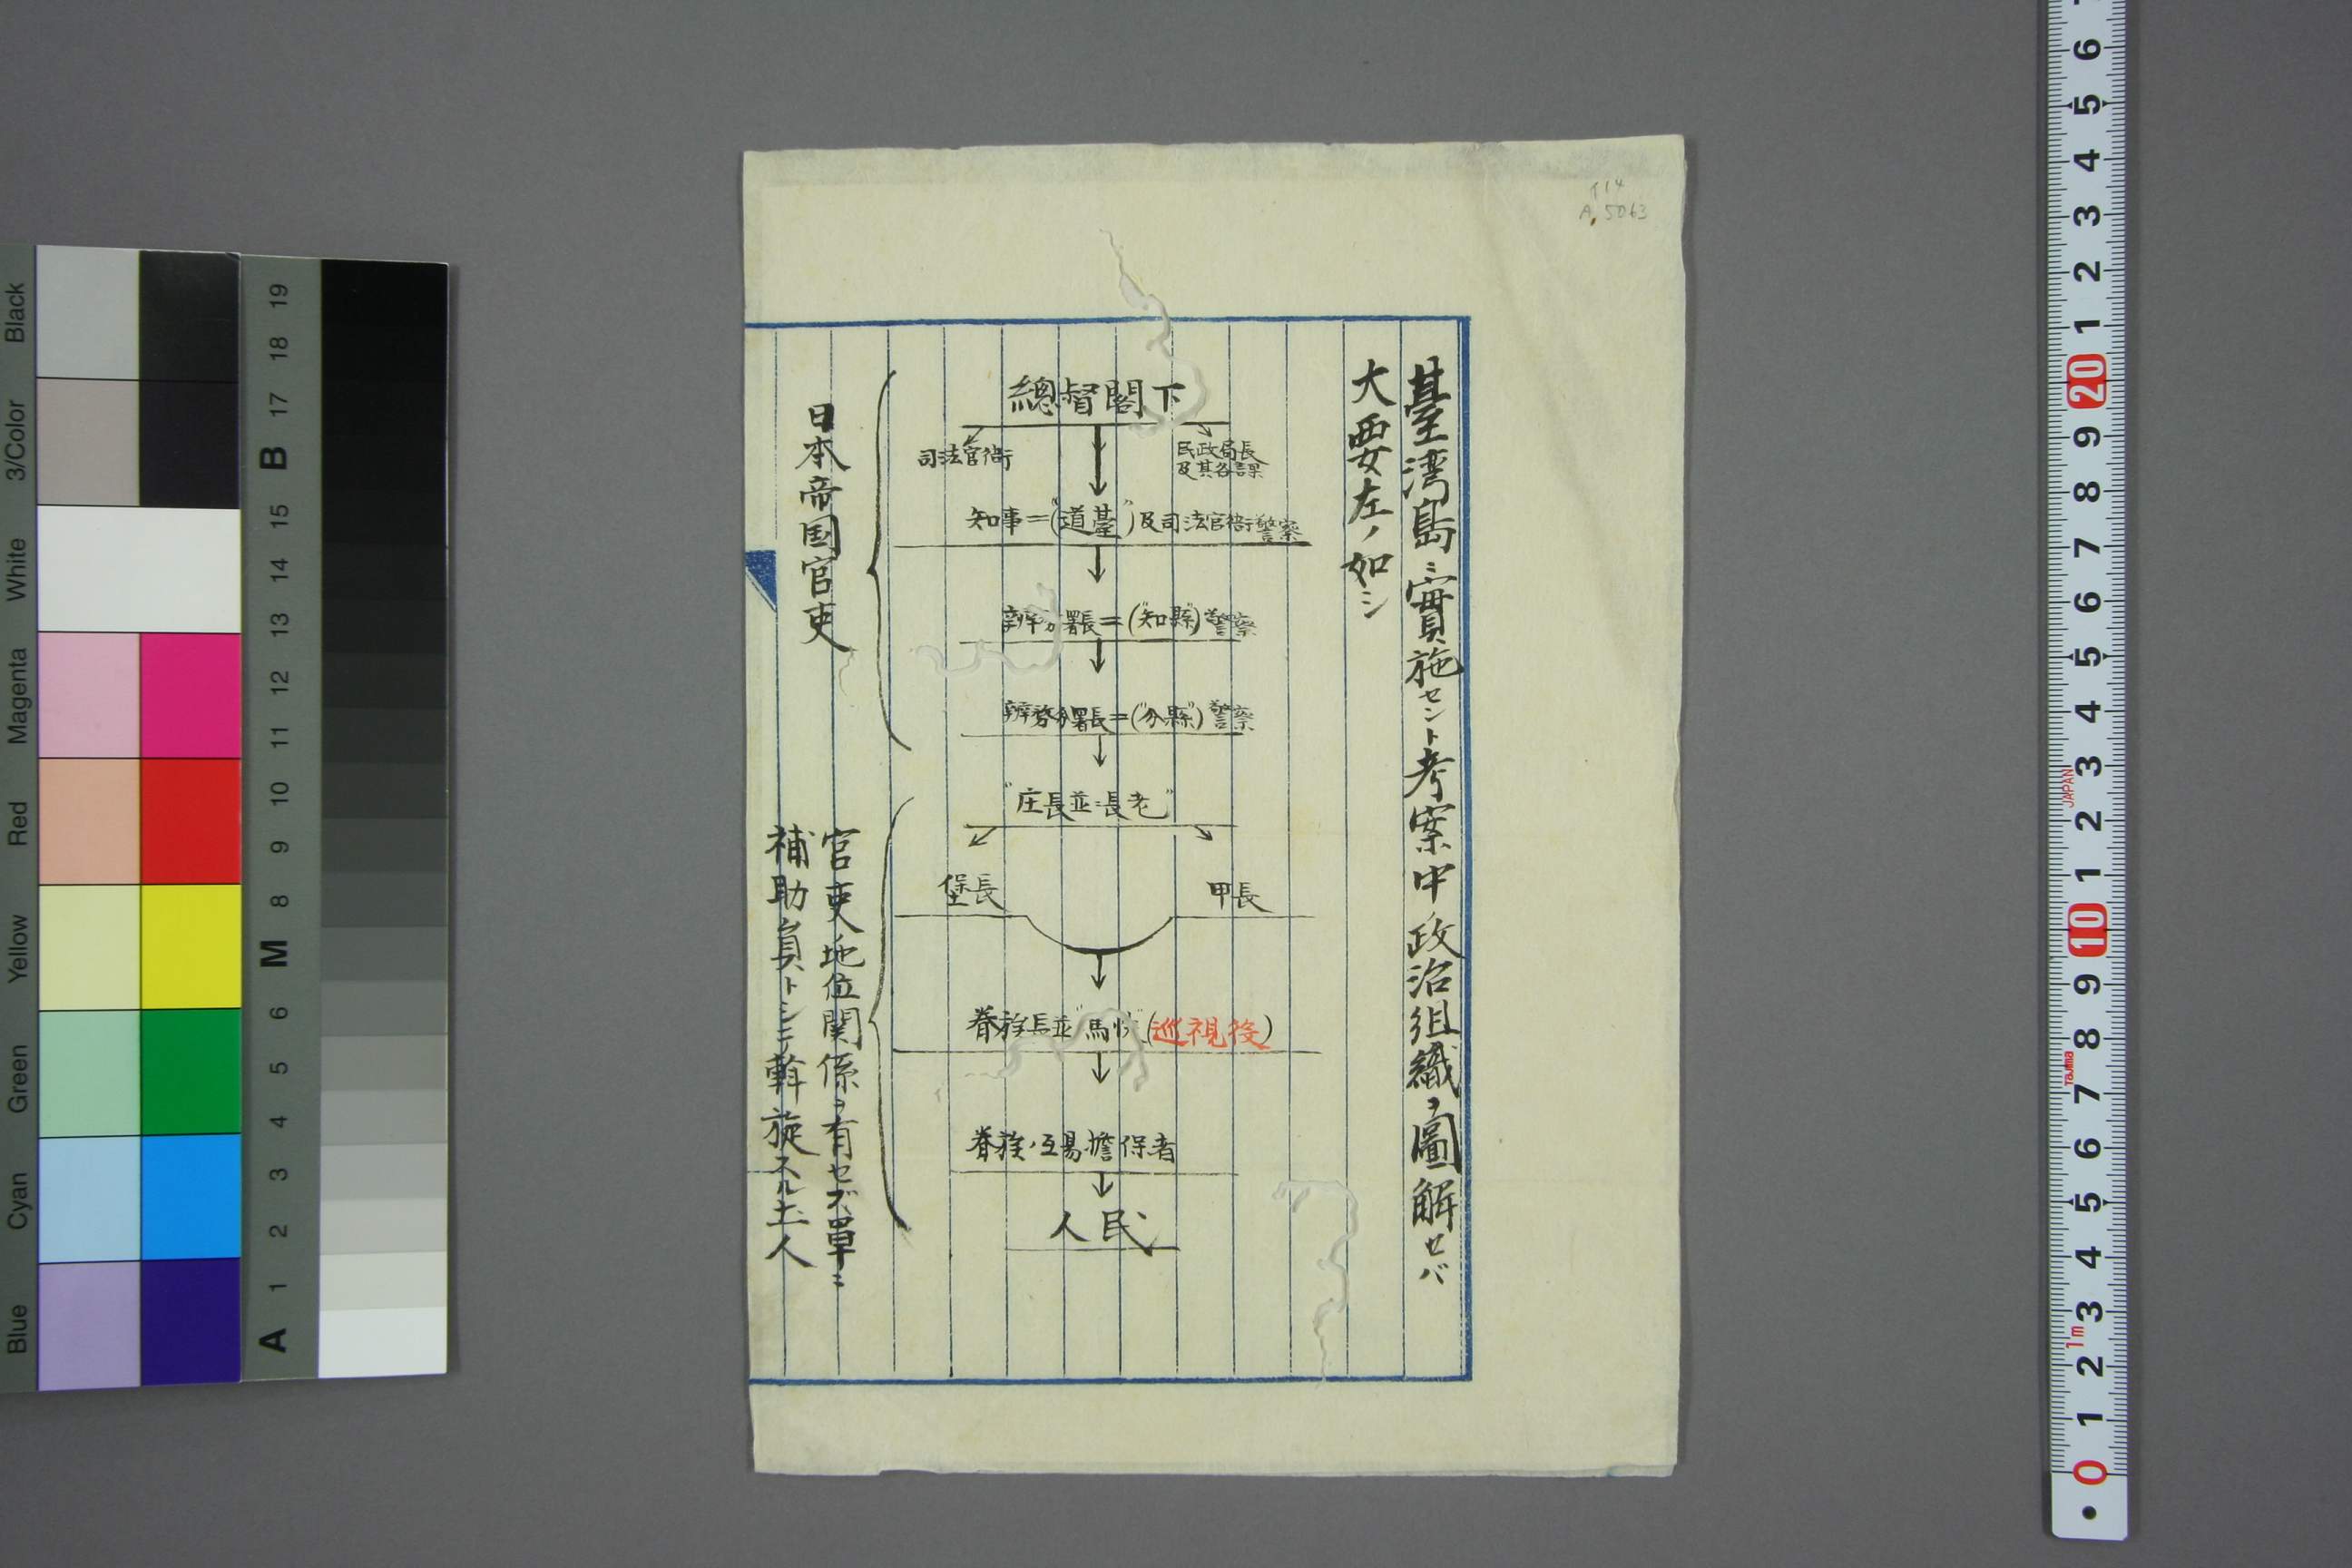 T14
A.5063
臺湾島ニ實施セント考案中政治組織ヲ圖解セバ
大要左ノ如シ
總督閣下
司法官衙
民政局長
及其各課
知事=("道臺")及司法官衙警察
辨务署長=("知縣")警察
辨务分署長=("分縣")警察
"庄長並ニ長老"
堡長
甲長
眷族長並"馬快"(巡視役)
眷族ノ互易擔保者
人民
日本帝国官吏
官吏地位関係ヲ有セズ單ニ
補助員トシテ斡旋スル土人
Black
3/Color
White
Magenta
Red
Yellow
Green
Cyan
Blue
19
18
17
B
15
14
13
12
11
10
9
8
M
6
5
4
3
2
1
A
6
5
4
3
2
1
20
9
8
7
6
5
4
3
JAPAN
2
1
10
9
8
Tajima
7
6
5
4
3
1m
2
1
0